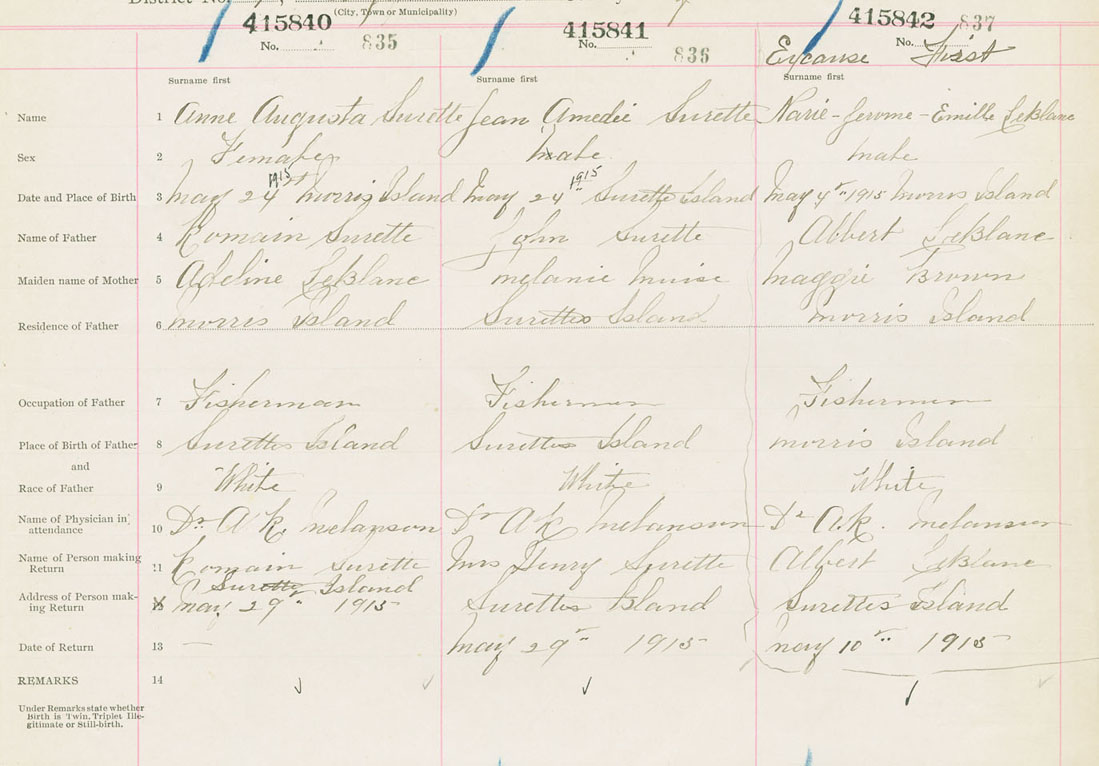 District No.
(City, Town or Municipality)
415840 415841 415842
No. 835 No. 836 No. 837
First
Surname first Surname first Surname first
Name 1 Anne Augusta Surette Jean Amedie Surette Marie-Jerome-Emille LeBlanc
Sex 2 Female Male Male
1915 1915
Date and Place of Birth 3 May 24 Morris Island May 24 Surette Island May 4th 1915 Morris Island
Name of Father 4 Romain Surette John Surette Albert LeBlanc
Maiden name of Mother 5 Adeline LeBlanc Melanie Muise Maggie Brown
Residence of Father 6 Morris Island Surettes Island Morris Island
Occupation of Father 7 Fisherman Fisherman Fisherman
Place of Birth of Father 8 Surettes Island Surettes Island Morris Island
and
Race of Father 9 White White White
Name of Physician in attendance 10 Dr A K. Melanson Dr A K Melanson Dr A.K. Melanson
Name of Person making Return 11 Romain Surette Mrs Henry Surette Albert LeBlanc
Surette Island
Address of Person making Return May 29th 1915 Surettes Island Surettes Island
Date of Return 13 — May 29th 1915 May 10th 1915
REMARKS 14
Under Remarks state whether
Birth is Twin, Triplet Ille-
gitimate or Still-birth.